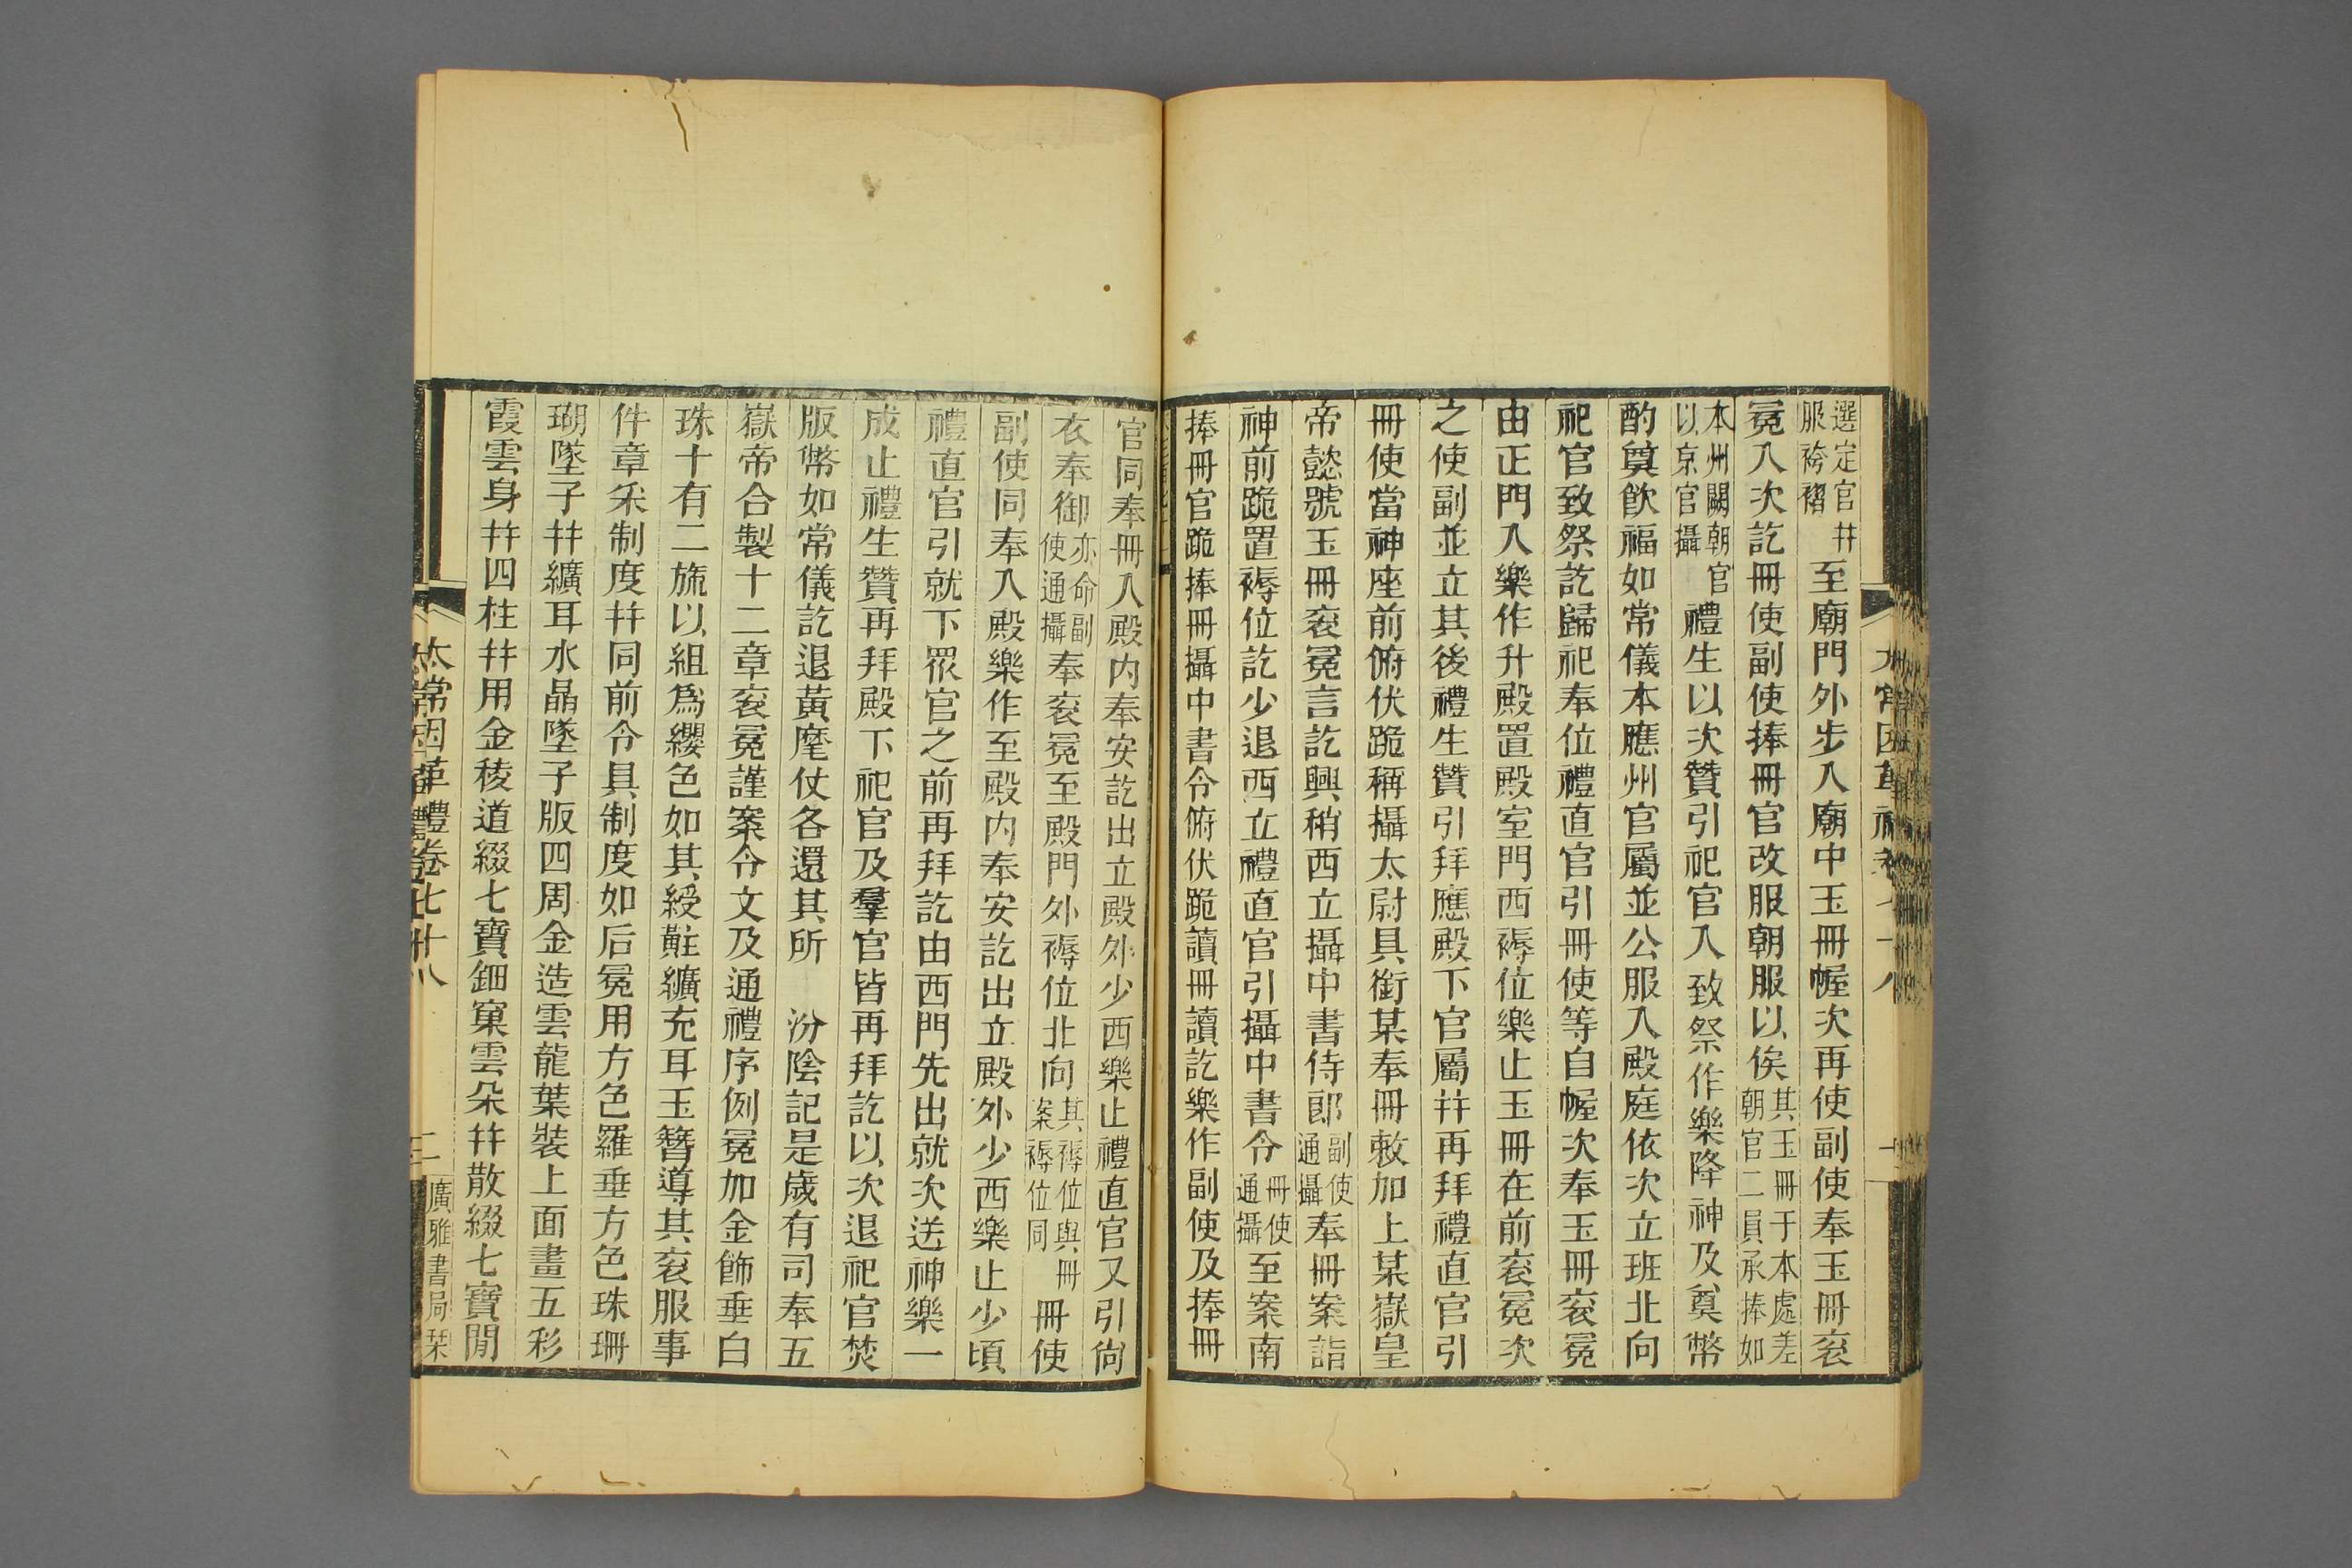 選定官幷服袴褶至廟門外步入廟中玉冊幄次再使副使奉玉冊衮
冕入次訖冊使副使捧冊官改服朝服以俟其玉冊于本處差朝官二員承捧如
本州闕朝官以京官攝禮生以次贊引祀官入致祭作樂降神及奠幣
酌奠飮福如常儀本應州官屬並公服入殿庭依次立班北向
祀官致祭訖歸祀奉位禮直官引冊使等自幄次奉玉冊衮冕
由正門入樂作升殿置殿室門西褥位樂止玉冊在前衮冕次
之使副並立其後禮生贊引拜應殿下官屬幷再拜禮直官引
冊使當神座前俯伏跪稱攝太尉具銜某奉冊敕加上某嶽皇
帝懿號玉冊衮冕言訖興稍西立攝中書侍郎副使通攝奉冊案詣
神前跪置褥位訖少退西立禮直官引攝中書令冊使通攝至案南
捧冊官跪捧冊攝中書令俯伏跪讀冊讀訖樂作副使及捧冊
官同奉冊入殿内奉安訖出立殿外少西樂止禮直官又引尙
衣奉御亦命副使通攝奉衮冕至殿門外褥位北向其褥位與冊案褥位同冊使
副使同奉入殿樂作至殿内奉安訖出立殿外少西樂止少頃
禮直官引就下眾官之前再拜訖由西門先出就次送神樂一
成止禮生贊再拜殿下祀官及羣官皆再拜訖以次退祀官焚
版幣如常儀訖退黃麾仗各還其所　汾陰記是歲有司奉五
嶽帝合製十二章衮冕謹案令文及通禮序例冕加金飾垂白
珠十有二旒以組爲纓色如其綬黈纊充耳玉簪導其衮服事
件章采制度幷同前令具制度如后冕用方色羅垂方色珠珊
瑚墜子幷纊耳水晶墜子版四周金造雲龍葉裝上面畫五彩
霞雲身幷四柱幷用金稜道綴七寶鈿窠雲朵幷散綴七寶閒
太常因革禮卷七十八
二
廣雅書局栞